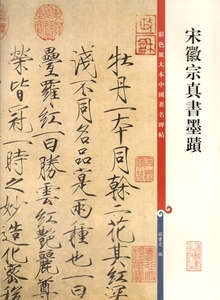 宋徽宗真書墨蹟
彩色放大本中國著名碑帖
孫寶文 編
牡丹一本同榦二花其紅深
淺不同名品寔兩種也一曰
疊羅紅一曰勝雲紅艷麗尊
榮皆冠一時之妙造化密